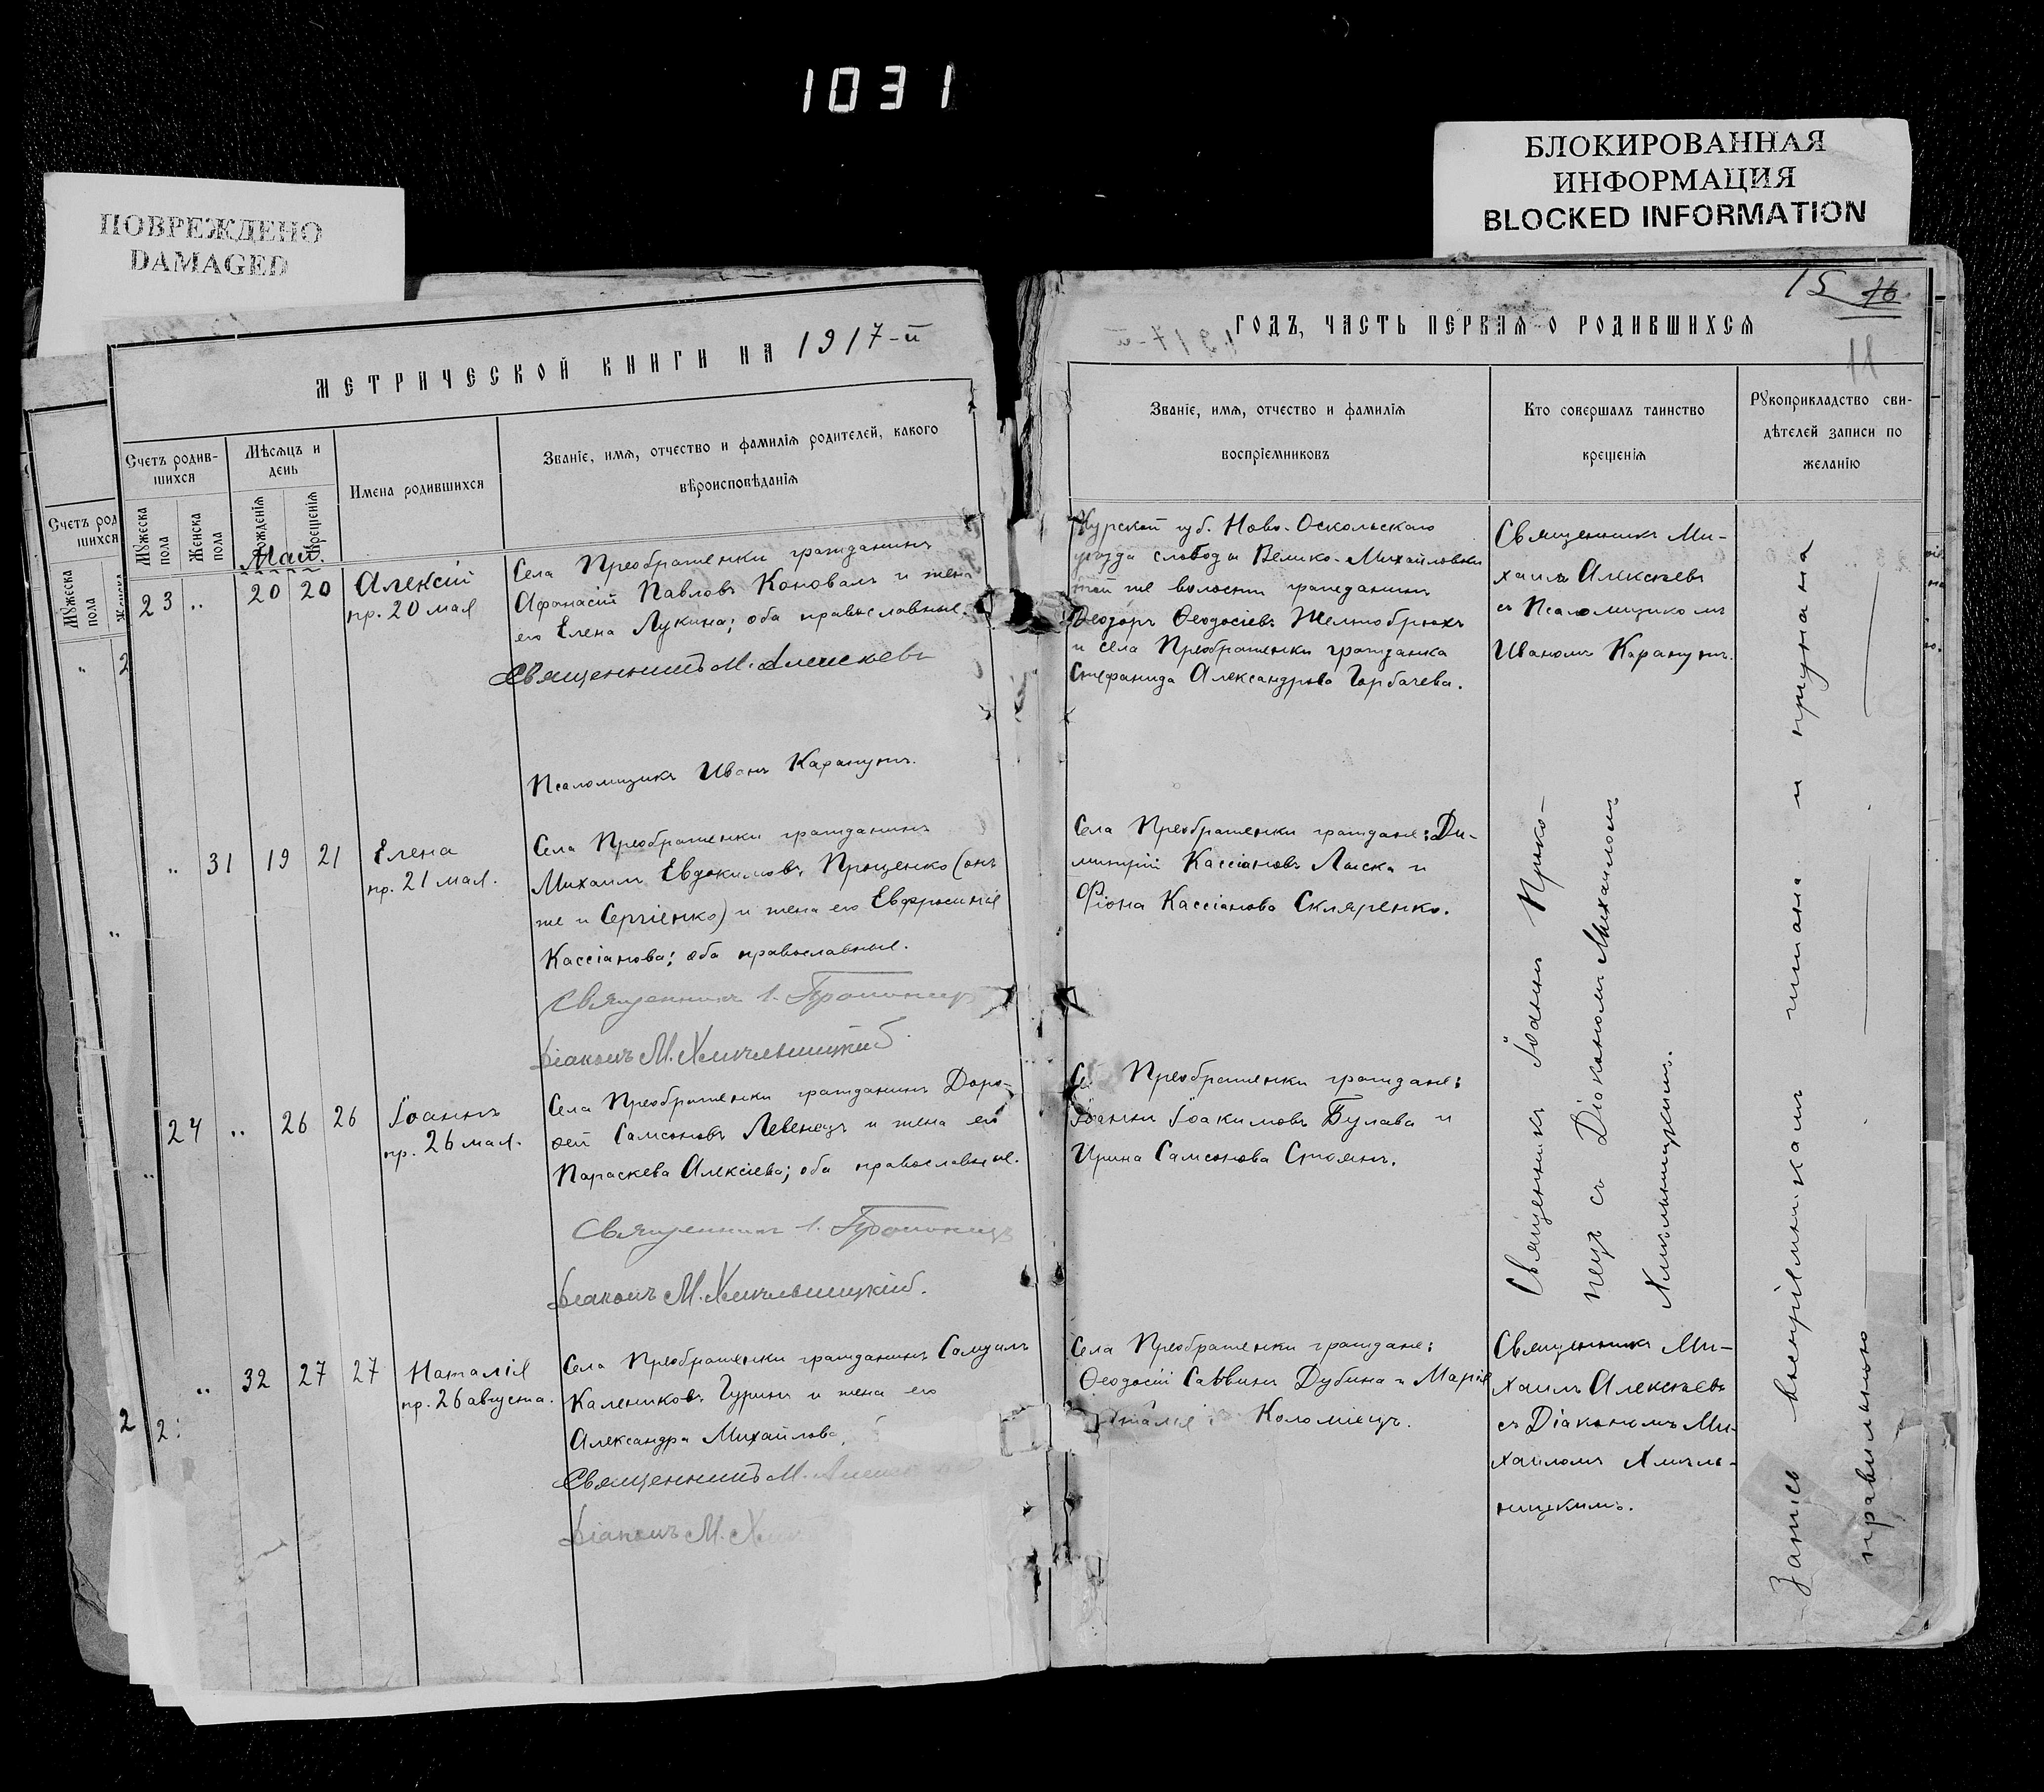 1031
ПОВРЕЖДЕНО
DAMAGED
БЛОКИРОВАННАЯ
ИНФОРМАЦИЯ
BLOCKED INFORMATION
МЕТРИЧЕСКОЙ КНИГИ НА 1917-й
Счетъ родив-
шихся
Мѣсяцъ и
день
Имена родившихся
Званіе, имя, отчество и фамилія родителей, какого
вѣроисповѣданія
Мужеска пола
Женска пола
Рожденія
Крещенія
Май.
23 „ 20 20
Алексій
пр. 20 мая
Села Преображенки гражданинъ
Афанасій Павловъ Коновалъ и жена
его Елена Лукина; оба православные.
Священникъ М. Алексѣевъ
Псаломщикъ Иванъ Карапутъ.
„ 31 19 21
Елена
пр. 21 мая.
Села Преображенки гражданинъ
Михаилъ Евдокимовъ Проценко (онъ
же и Сергіенко) и жена его Евфросинія
Кассіанова; оба православные.
Священникъ І.
Діаконъ М. Хмѣльницкій.
24 „ 26 26
Іоаннъ
пр. 26 мая.
Села Преображенки гражданинъ Доро-
ѳей Самсоновъ Левенецъ и жена его
Параскева Алексіева; оба православные.
Священникъ І.
Діаконъ М. Хмѣльницкій.
„ 32 27 27
Наталія
пр. 26 августа.
Села Преображенки гражданинъ Самуилъ
Калениковъ Гуринъ и жена его
Александра Михайлова
Священникъ М.
Діаконъ М.
15 16
11
ГОДЪ, ЧАСТЬ ПЕРВАЯ О РОДИВШИХСЯ
Званіе, имя, отчество и фамилія
воспріемниковъ
Кто совершалъ таинство
крещенія
Рукоприкладство сви-
дѣтелей записи по
желанію
Курской губ. Ново-Оскольскаго
уѣзда слободы Велико-Михайловки
той же волости гражданинъ
Ѳеодоръ Ѳеодосіевъ Желтобрюхъ
и села Преображенки гражданка
Стефанида Александрова Горбачева.
Священникъ Ми-
хаилъ Алексѣевъ
съ Псаломщикомъ
Иваномъ Карапутъ.
Села Преображенки граждане: Ди-
митрій Кассіановъ Лыска и
Фіона Кассіанова Скляренко.
Преображенки граждане:
Іоаннъ Іоакимовъ Булава и
Ирина Самсонова Стоянъ.
Священникъ Іоаннъ Проко-
пецъ съ Діакономъ Михаиломъ
Хмѣльницкимъ.
Села Преображенки граждане:
Ѳеодосій Саввинъ Дубина и Марія
Коломіецъ.
Священникъ Ми-
хаилъ Алексѣевъ
съ Діакономъ Ми-
хаиломъ Хмѣль-
ницкимъ.
Запись воспріемникамъ читана и признана
правильною